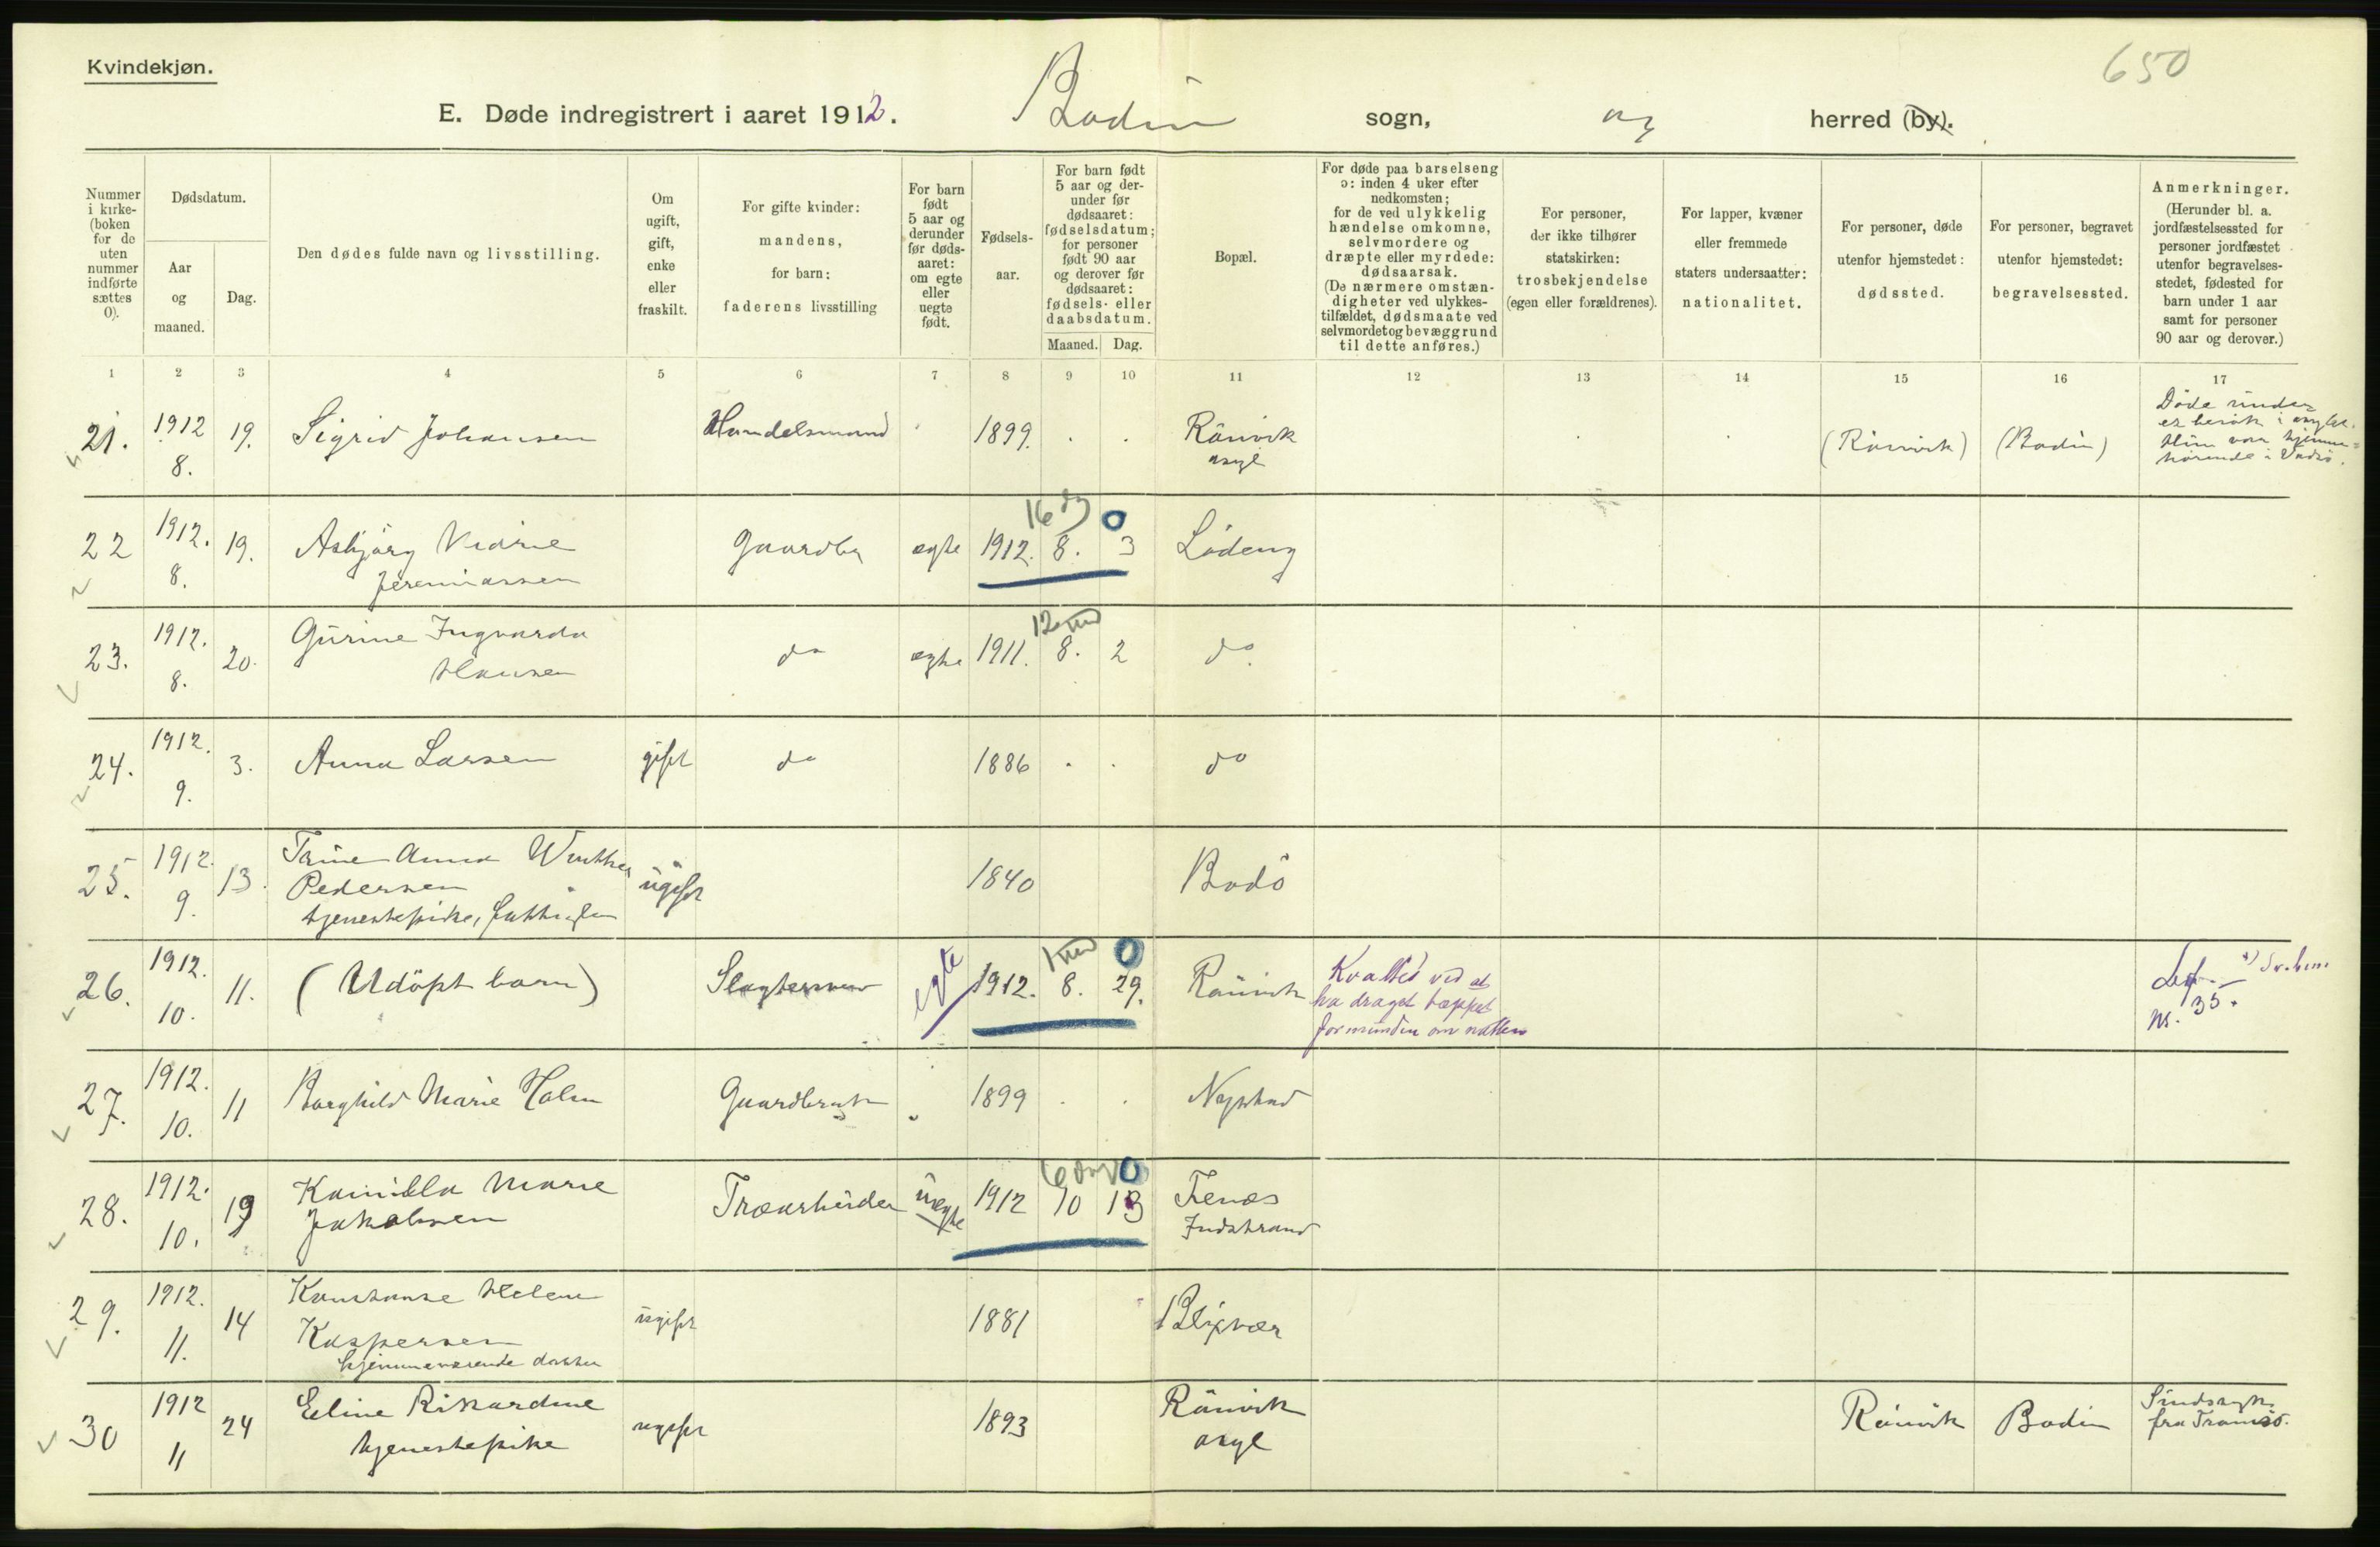 Kvindekjøn.
650
E. Døde indregistrert i aaret 1912. Bodin sogn, og herred (by).
Nummer i kirke-(boken for de uten nummer indførte sættes 0).
Dødsdatum.
Aar og maaned.
Dag.
Den dødes fulde navn og livsstilling.
Om ugift, gift, enke eller fraskilt.
For gifte kvinder: mandens, for barn: faderens livsstilling
For barn født 5 aar og derunder før døds-aaret: om egte eller uegte født.
Fødsels-aar.
For barn født 5 aar og der-under før dødsaaret: fødselsdatum; for personer født 90 aar og derover før dødsaaret: fødsels- eller daabsdatum.
Maaned. Dag.
Bopæl.
For døde paa barselseng ɔ: inden 4 uker efter nedkomsten; for de ved ulykkelig hændelse omkomne, selvmordere og dræpte eller myrdede: dødsaarsak. (De nærmere omstæn-digheter ved ulykkes-tilfældet, dødsmaate ved selvmord et og bevæggrund til dette anføres.)
For personer, der ikke tilhører statskirken: trosbekjendelse (egen eller forældrenes).
For lapper, kvæner eller fremmede staters undersaatter: nationalitet.
For personer, døde utenfor hjemstedet: dødssted.
For personer, begravet utenfor hjemstedet: begravelsessted.
Anmerkninger. (Herunder bl. a. jordfæstelsessted for personer jordfæstet utenfor begravelses-stedet, fødested for barn under 1 aar samt for personer 90 aar og derover.)
1 2 3 4 5 6 7 8 9 10 11 12 13 14 15 16 17
21. 1912 8. 19. Sigrid Johansen Handelsmand 1899. Rönvik asyl (Rönvik) (Bodin) Döde under et besök i asylet. Hun var hjemme-hörende i Vadsö.
22 1912. 8. 19. Asbjörg Marie Jeremiassen Gaardbr egte 1912. 8. 3 16 dg 0 Löding
23. 1912. 8. 20. Gurine Ingvarda Hansen do egte 1911. 8. 2 12 md do.
24. 1912. 9. 3. Anna Larsen gift do 1886 do
25. 1912. 9. 13. Trine Anna Winther Pedersen tjenestepike, fattiglem ugift 1840 Bodö
26. 1912. 10. 11. (Udöpt barn) Slagtersven egte 1912. 8. 29. 1 md 0 Rönvik Kvalted ved at ha draget tæppet for munden om natten Nr. 35.
27. 1912. 10. 11 Borghild Marie Holm Gaardbruk 1899 Nystad
28. 1912. 10. 19 Kamilla Marie Jakobsen Træarbeider uegte 1912 10 13 6 dag 0 Fenæs Indstrand
29. 1912. 11. 14 Konstanse Helene Kaspersen hjemmeværende datter ugift 1881 Blixvær
30 1912 11 24 Eline Rikardine tjenestepike ugift 1893 Rönvik asyl Rönvik Bodin Sindssyk fra Tromsö.